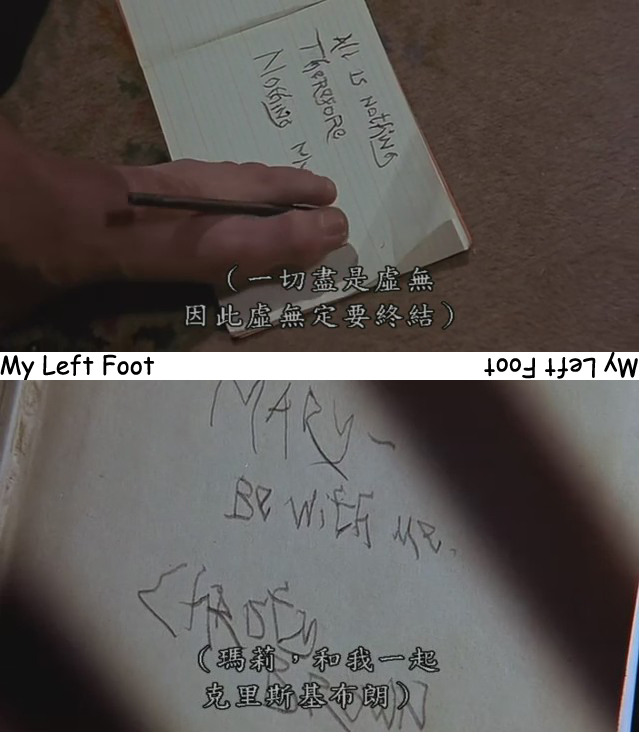 ALL is NOthing
Therefore
Nothing
（一切盡是虛無
因此虛無定要終結）
My Left Foot
My Left Foot
MARY-
Be With Me.
（瑪莉，和我一起
克里斯基布朗）
BROWN